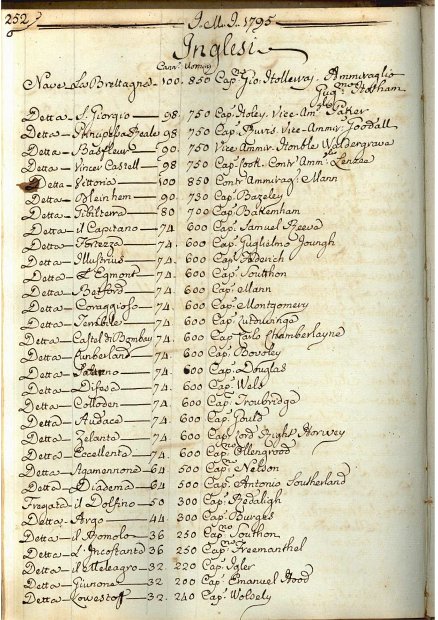 252
I. M. I. 1795
Inglesi
Cann. Uomini
Nave La Brettagna 100. 850 Cap. Gio. Holleway. Ammiraglio
Gug.mo Hotham.
Detta S. Giorgio 98. 750 Cap. Foley. Vice-Am. Parker
Detta Principessa Reale 98. 750 Cap. Purvs. Vice-Ammir. Goodall
Detta Basfleur 90. 750 Vice Ammir. Honble Waldergrava
Detta Vincer Castell 98 750 Cap. Cook. Contr'Amm. Lenzea
Detta Vittoria 100 850 Contr'Ammirag. Mann
Detta Bleinhem 90. 730 Cap. Bazeley
Detta Gibilterra 80 700 Cap. Bakenham
Detta il Capitano 74. 600 Cap. Samuel Reeva
Detta Fortezza 74. 600 Cap. Guglielmo Joungh
Detta Illustrius 74. 600 Cap. Frderich
Detta L'Egmont 74. 600 Cap. Soutthon
Detta Betford 74. 600 Cap. Mann
Detta Coraggioso 74. 600 Cap. Montgomery
Detta Terribile 74. 600 Cap.
Detta Castel di Bombay 74. 600 Cap. Carlo Chamberlayne
Detta Kunberland 74. 600 Cap. Bovoley
Detta 74. 600 Cap. Douglas
Detta Difesa 74. 600 Cap. Wels
Detta Colloden 74. 600 Cap. Troubridge
Detta Audace 74. 600 Cap. Gould
Detta Zelanta 74. 600 Cap. Lord Hughs Horwey
Detta Eccellenta 74. 600 Cap. Ollengrood
Detta Agamennone 64. 500 Cap.no Nelson
Detta Diadema 64. 500 Cap. Antonio Southerland
Fregata il Dolfino 50. 300 Cap. Redaligh
Detta Argo 44. 300 Cap. Burges
Detta il Romolo 36. 250 Cap. Southon
Detta L'Incostante 36 250 Cap.no Freemanthel
Detta il Meleagro 32. 220 Cap. Igler
Detta Giunone 32. 200 Cap. Emanuel Hood
Detta Lowestoff 32. 240 Cap. Wolvely